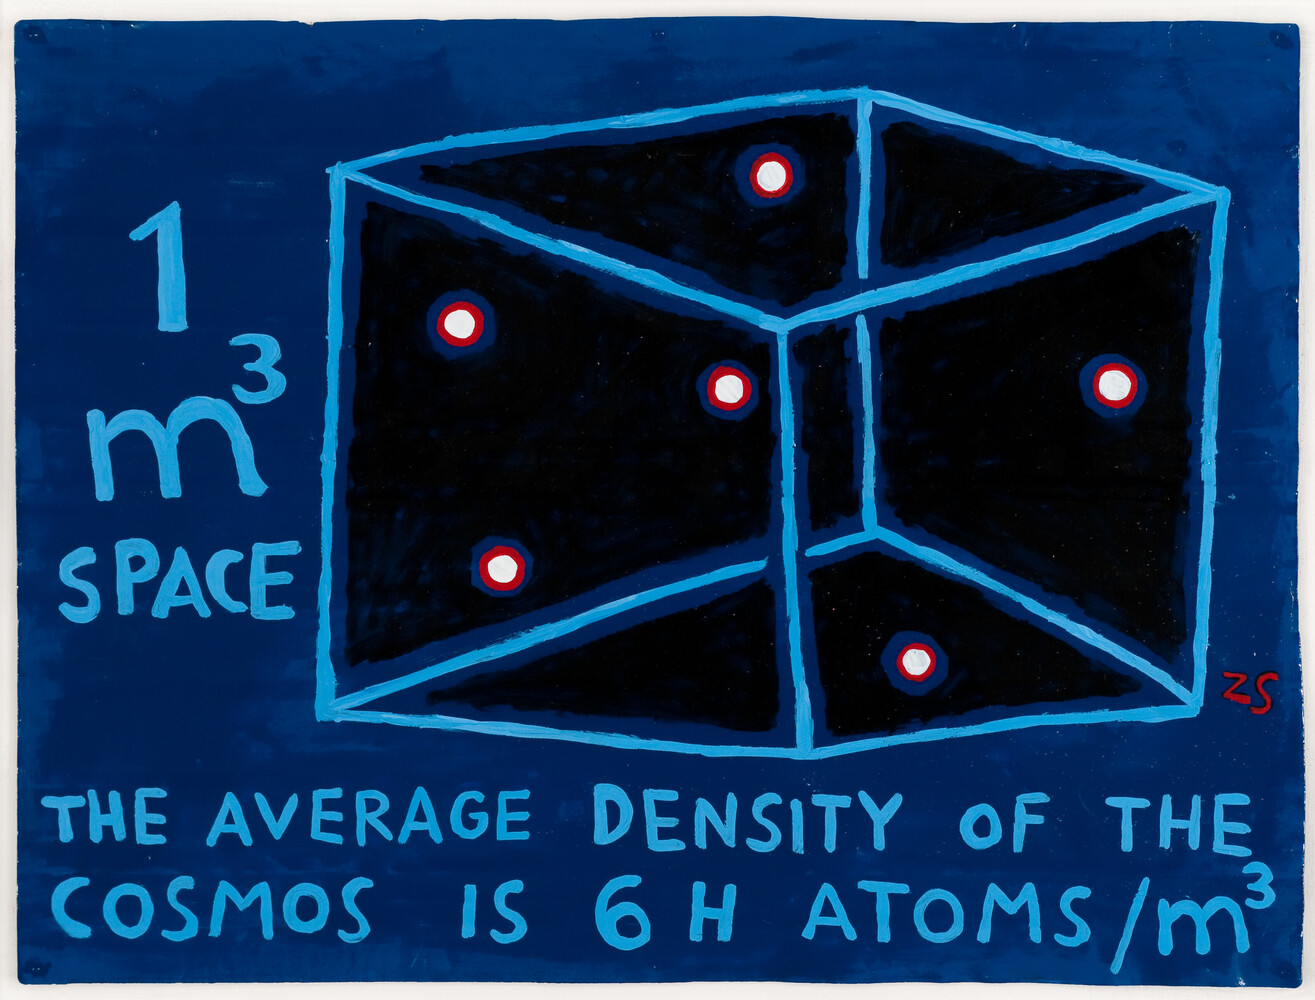 1
m³
SPACE
ZS
THE AVERAGE DENSITY OF THE
COSMOS IS 6 H ATOMS/m³